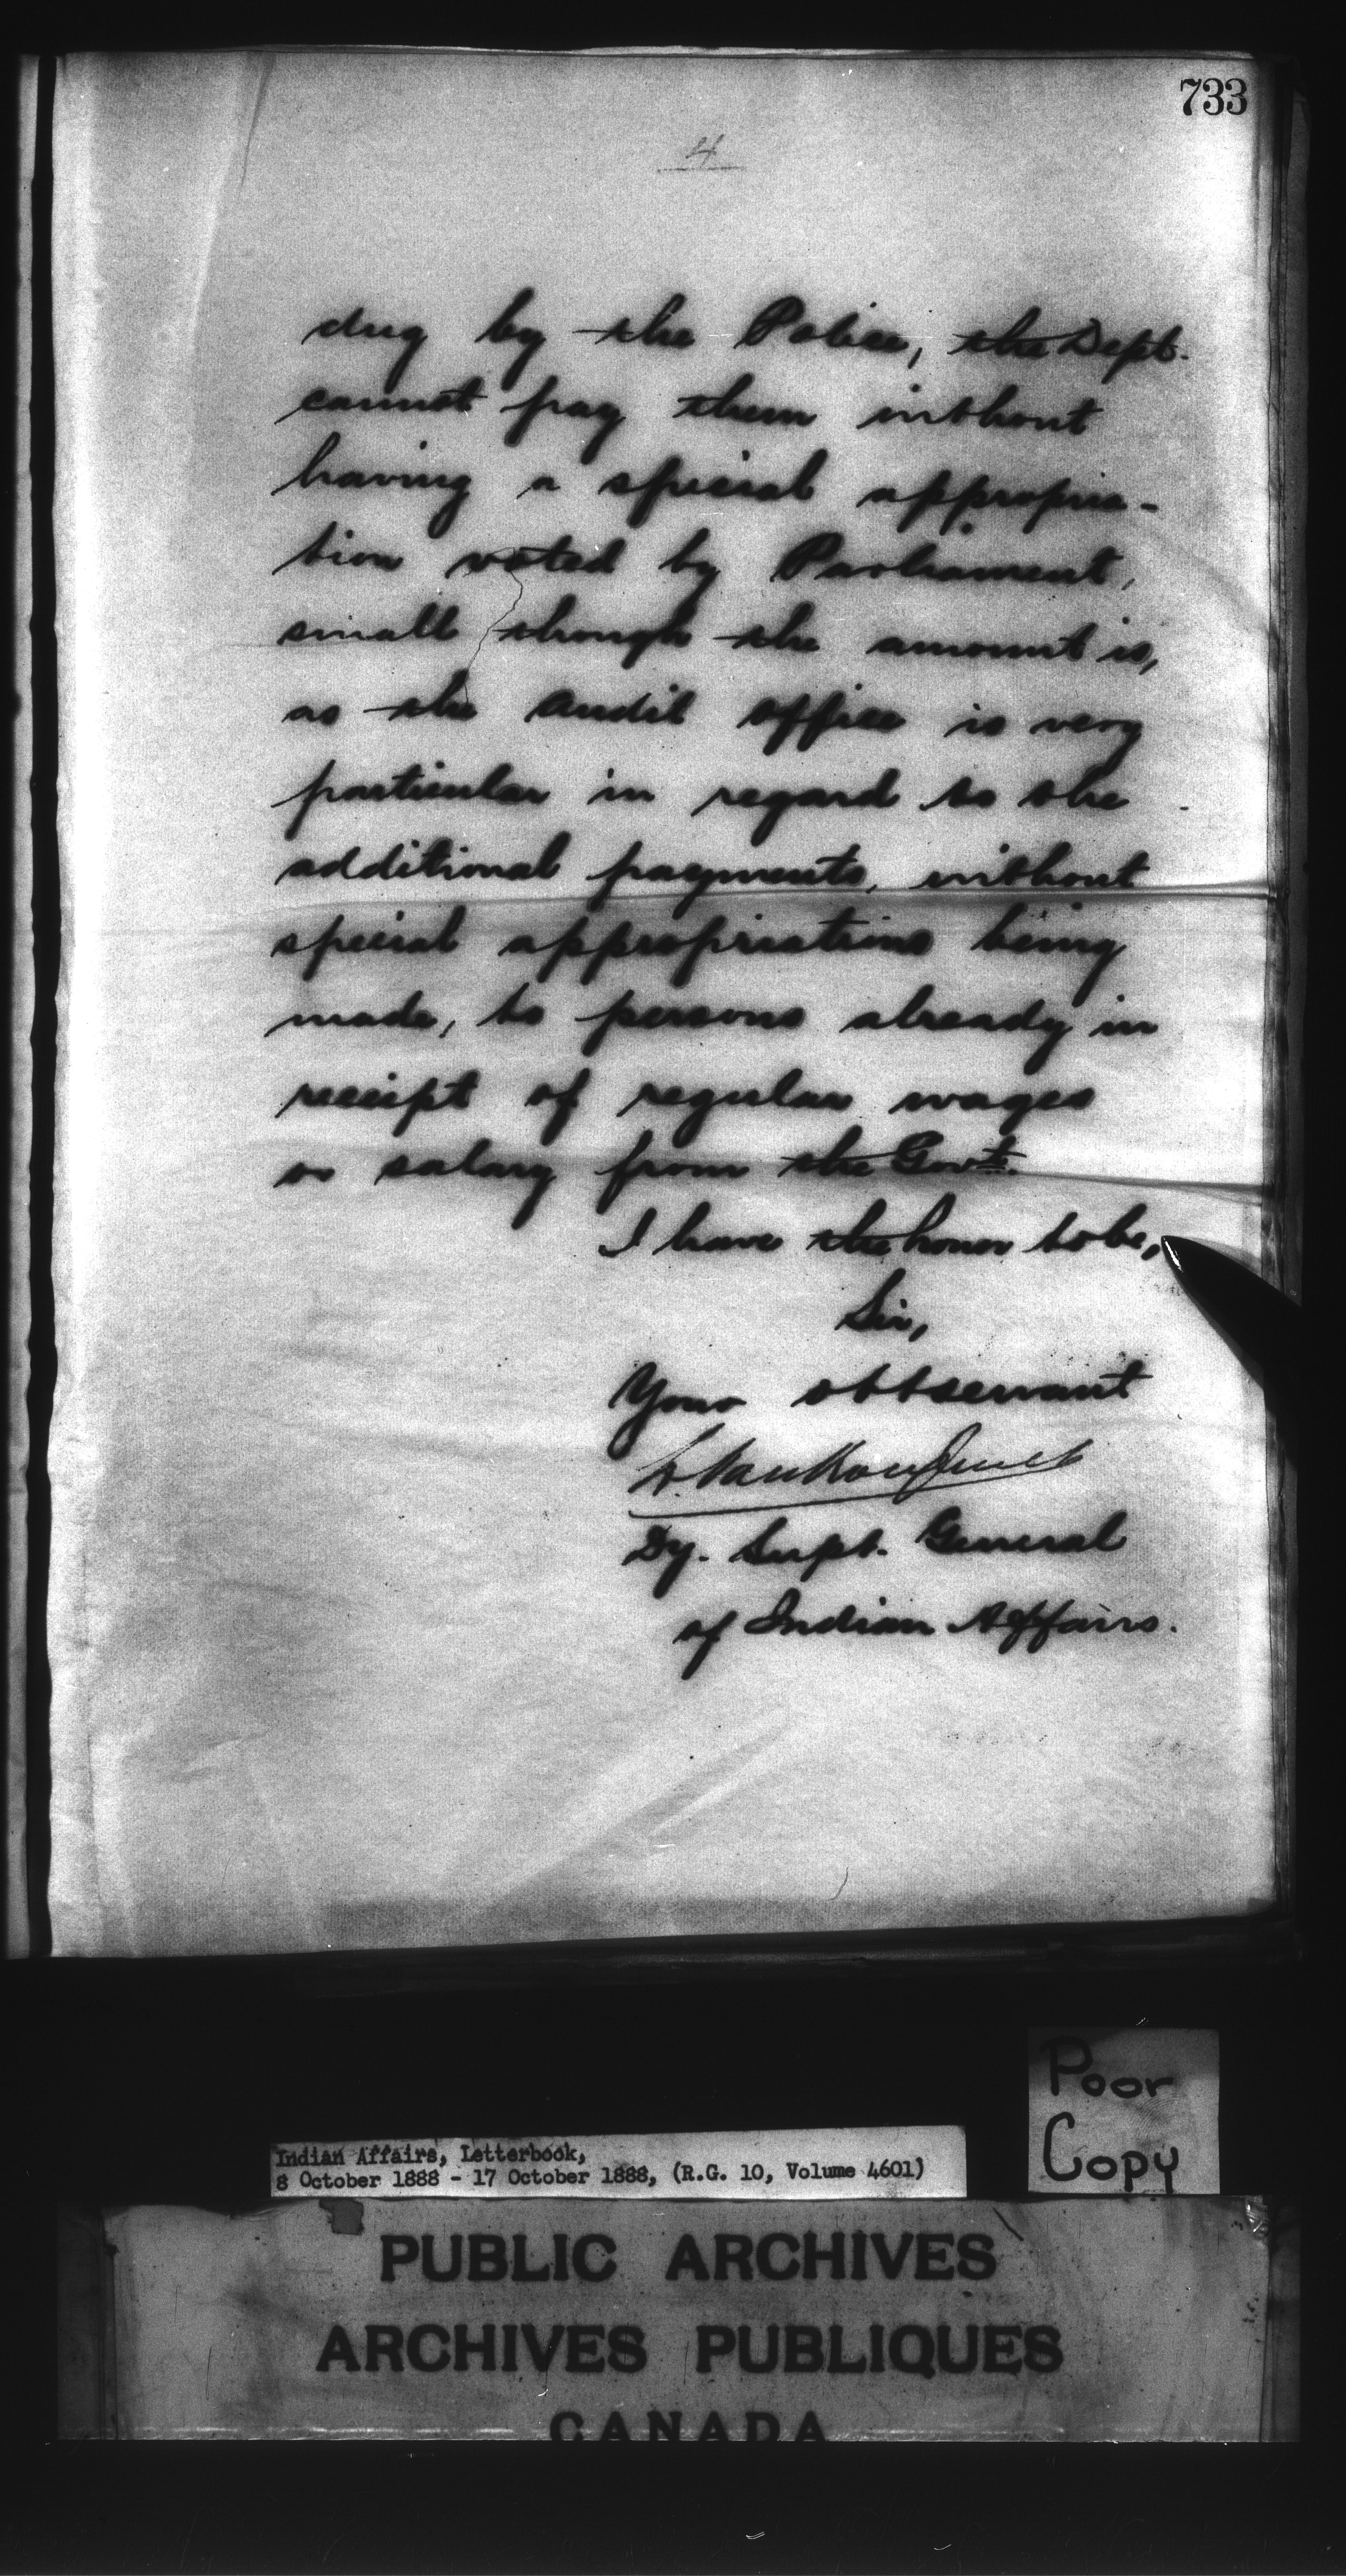 733
4
dug by the Police, the Dept.
cannot pay them without
having a special appropria-
tion voted by Parliament,
small though the amount is,
as the Audit office is very
particular in regard to the
additional payments, without
special appropriations being
made, to persons already in
receipt of regular wages
or salary from the Govt.
I have the honor to be,
Sir,
Your obt servant
L. VanKoughnet
Dy. Supt. General
of Indian Affairs.
Poor
Copy
Indian Affairs, Letterbook,
8 October 1888 - 17 October 1888, (R.G. 10, Volume 4601)
PUBLIC ARCHIVES
ARCHIVES PUBLIQUES
CANADA